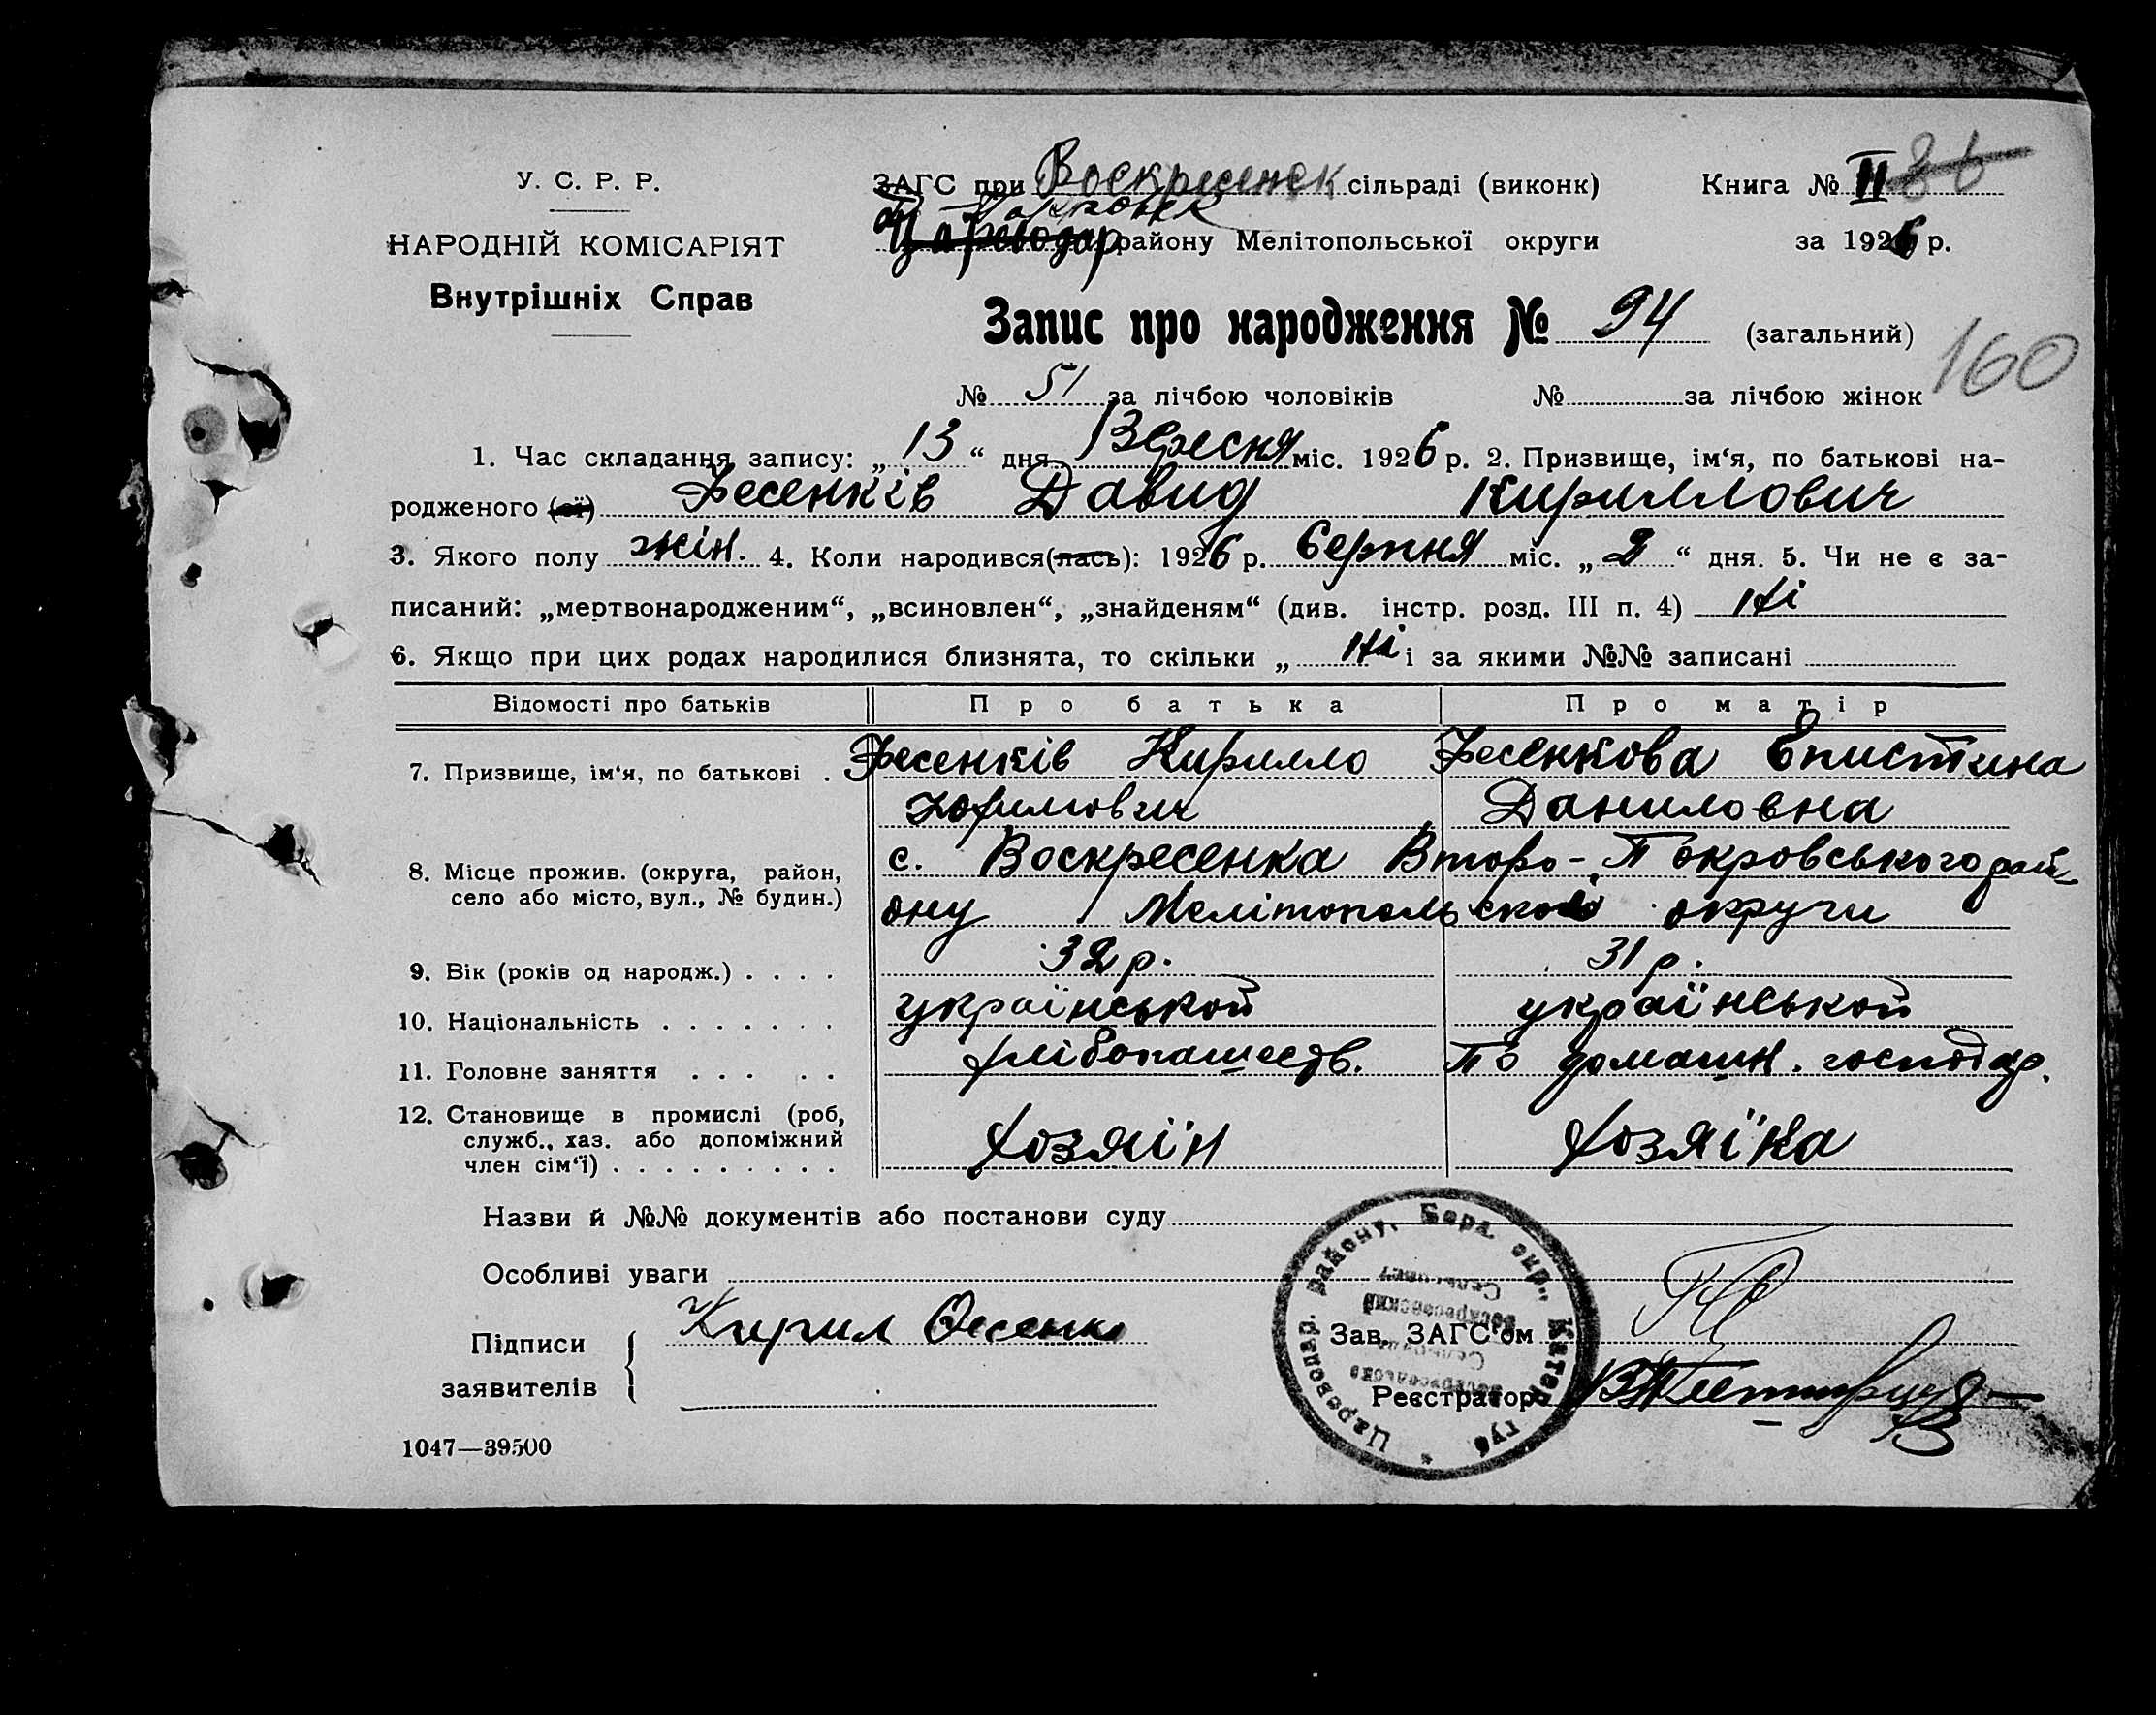 У. С. Р. Р.
НАРОДНІЙ КОМІСАРІЯТ
Внутрішніх Справ
ЗАГС при Воскресенск сільраді (виконк) Книга № II 36
В Покровск
Цареводар району Мелітопольської округи за 1926 р.
Запис про народження № 94 (загальний)
160
№ 51 за лічбою чоловіків № за лічбою жінок
1. Час складання запису: „ 13 “ дня Вересня міс. 1926 р. 2. Призвище, ім‘я, по батькові на-
родженого (ої) Фесенків Давид Кириллович
3. Якого полу жін. 4. Коли народився(лась): 1926 р. Серпня міс. „ 2 “ дня. 5. Чи не є за-
писаний: „мертвонародженим“, „всиновлен“, „знайденям“ (див. інстр. розд. III п. 4) Ні
6. Якщо при цих родах народилися близнята, то скільки „ Ні і за якими №№ записані
Відомості про батьків Про батька Про матір
7. Призвище, ім‘я, по батькові . Фесенків Кирилло Фесенкова Епистина
Юхимович Даниловна
8. Місце прожив. (округа, район, с. Воскресенка Второ-Покровського рай
село або місто, вул., № будин.) ону Мелітопольскої округи
9. Вік (років од народж.) . . . . 32 р. 31 р.
10. Національність . . . . . . . українськой українськой
11. Головне заняття . . . . . хлібопашеств. По домашн. господар.
12. Становище в промислі (роб,
служб., хаз. або допоміжний Хозяїн Хозяїка
член сім‘ї) . . . . . . . . .
Назви й №№ документів або постанови суду
Особливі уваги
Підписи Кирил Фесенко Зав. ЗАГС‘ом
заявителів Реєстратор
Цареводар. району, Берд. окр., Катер. губ
Сельсовет
Воскресенский
1047—39500